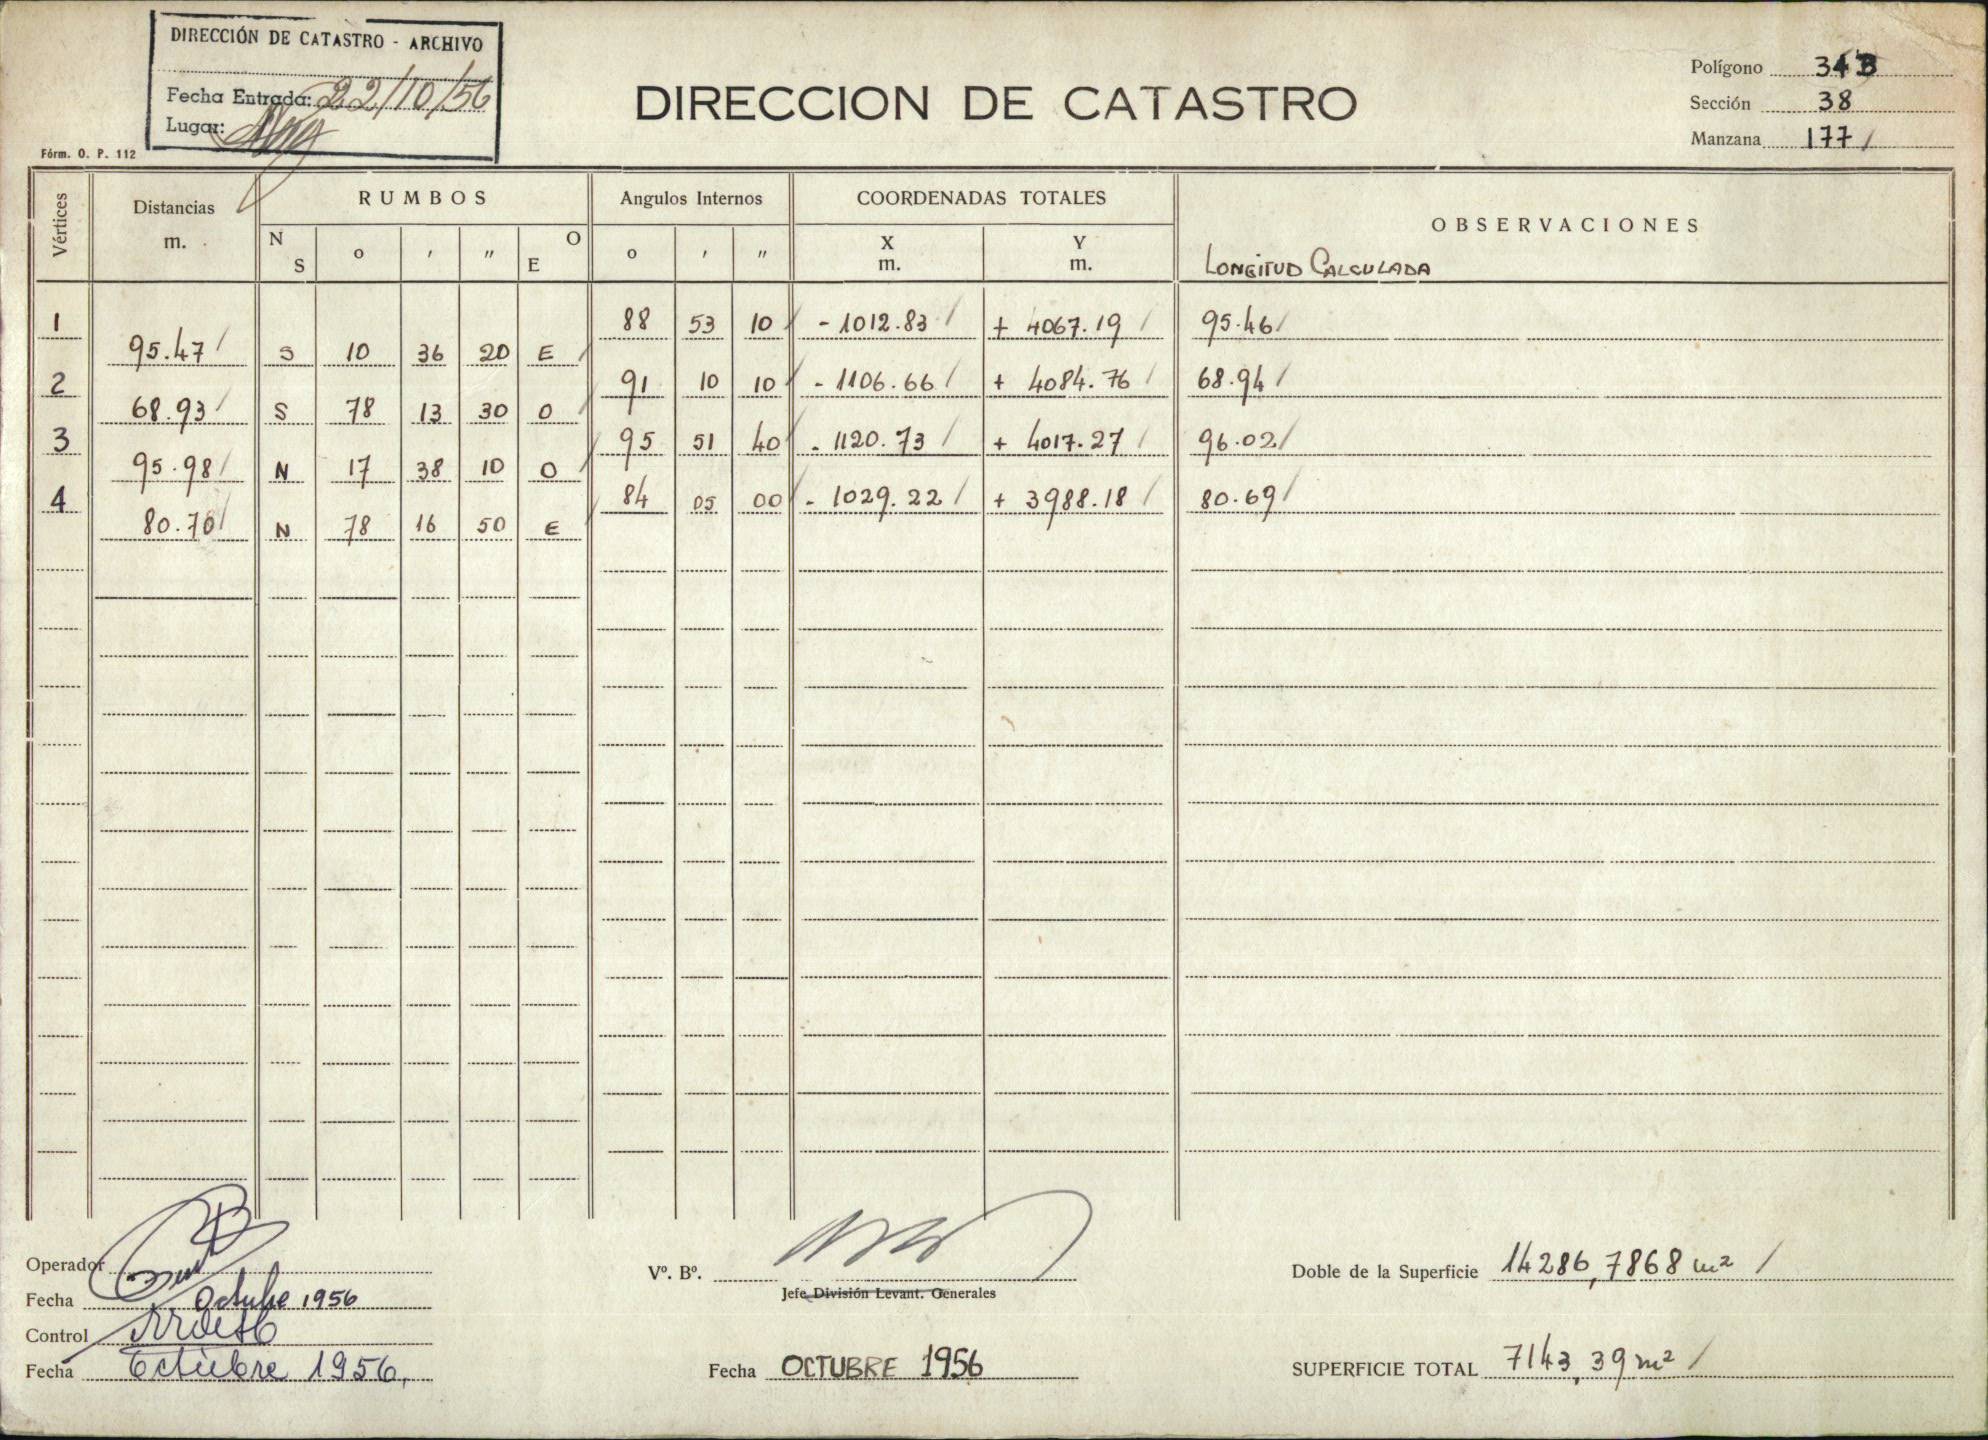 DIRECCIÓN DE CATASTRO - ARCHIVO
Fecha Entrada: 22/10/56
Lugar:
Fórm. O. P. 112
DIRECCION DE CATASTRO
Polígono
Sección 38
Manzana 177
Vértices Distancias m. RUMBOS Angulos Internos COORDENADAS TOTALES OBSERVACIONES
N S o ' " O E o ' " X m. Y m. LONGITUD CALCULADA
1 88 53 10 - 1012.83 + 4067.19 95.46
95.47 S 10 36 20 E
2 91 10 10 - 1106.66 + 4084.76 68.94
68.93 S 78 13 30 O
3 95 51 40 - 1120.73 + 4017.27 96.02
95.98 N 17 38 10 O
4 84 05 00 - 1029.22 + 3988.18 80.69
80.70 N 78 16 50 E
Operador
Fecha Octubre 1956
Control
Fecha Octubre 1956,
Vº. Bº.
Jefe División Levant. Generales
Fecha OCTUBRE 1956
Doble de la Superficie 14286,7868 m²
SUPERFICIE TOTAL 7143,39 m²